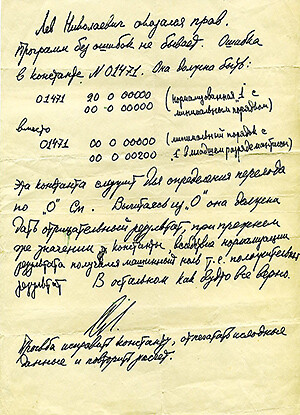 Лев Николаевич оказался прав.
Программ без ошибок не бывает. Ошибка
в константе N 01471. Она должна быть:
01471 90 0 00000 (нормализованная 1 с
00 0 00000 минимальным порядком)
вместо
01471 00 0 00000 (минимальный порядок с
00 0 00200 1 в младшем разряде мантиссы)
Эта константа служит для определения перехода
по "0" Сп. Вычитаясь из "0" она должна
дать отрицательный результат, при прежнем
же значении константы вследствие нормализации
результата получался машинный ноль т.е. положительный
результат В остальном как будто все верно.
Просьба исправить константу, отпечатать исходные
данные и повторить расчет.